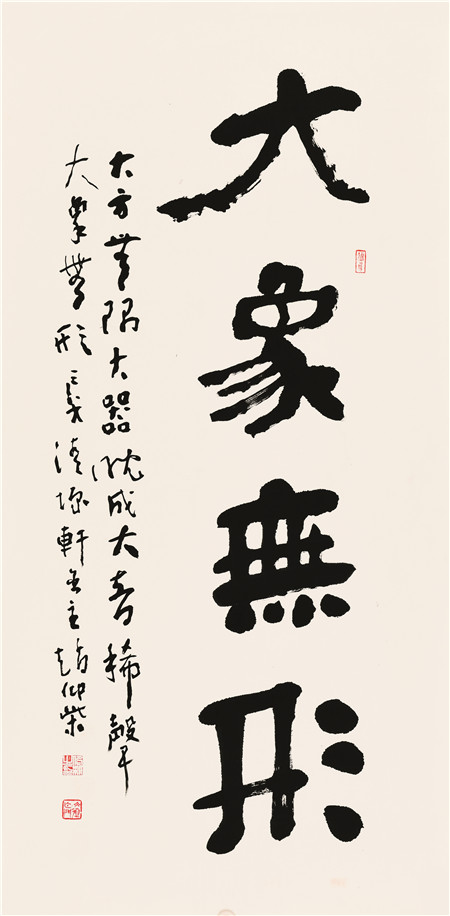 大象無形
大方無隅大器晚成大音稀聲
大象無形 清 軒 主趙仰